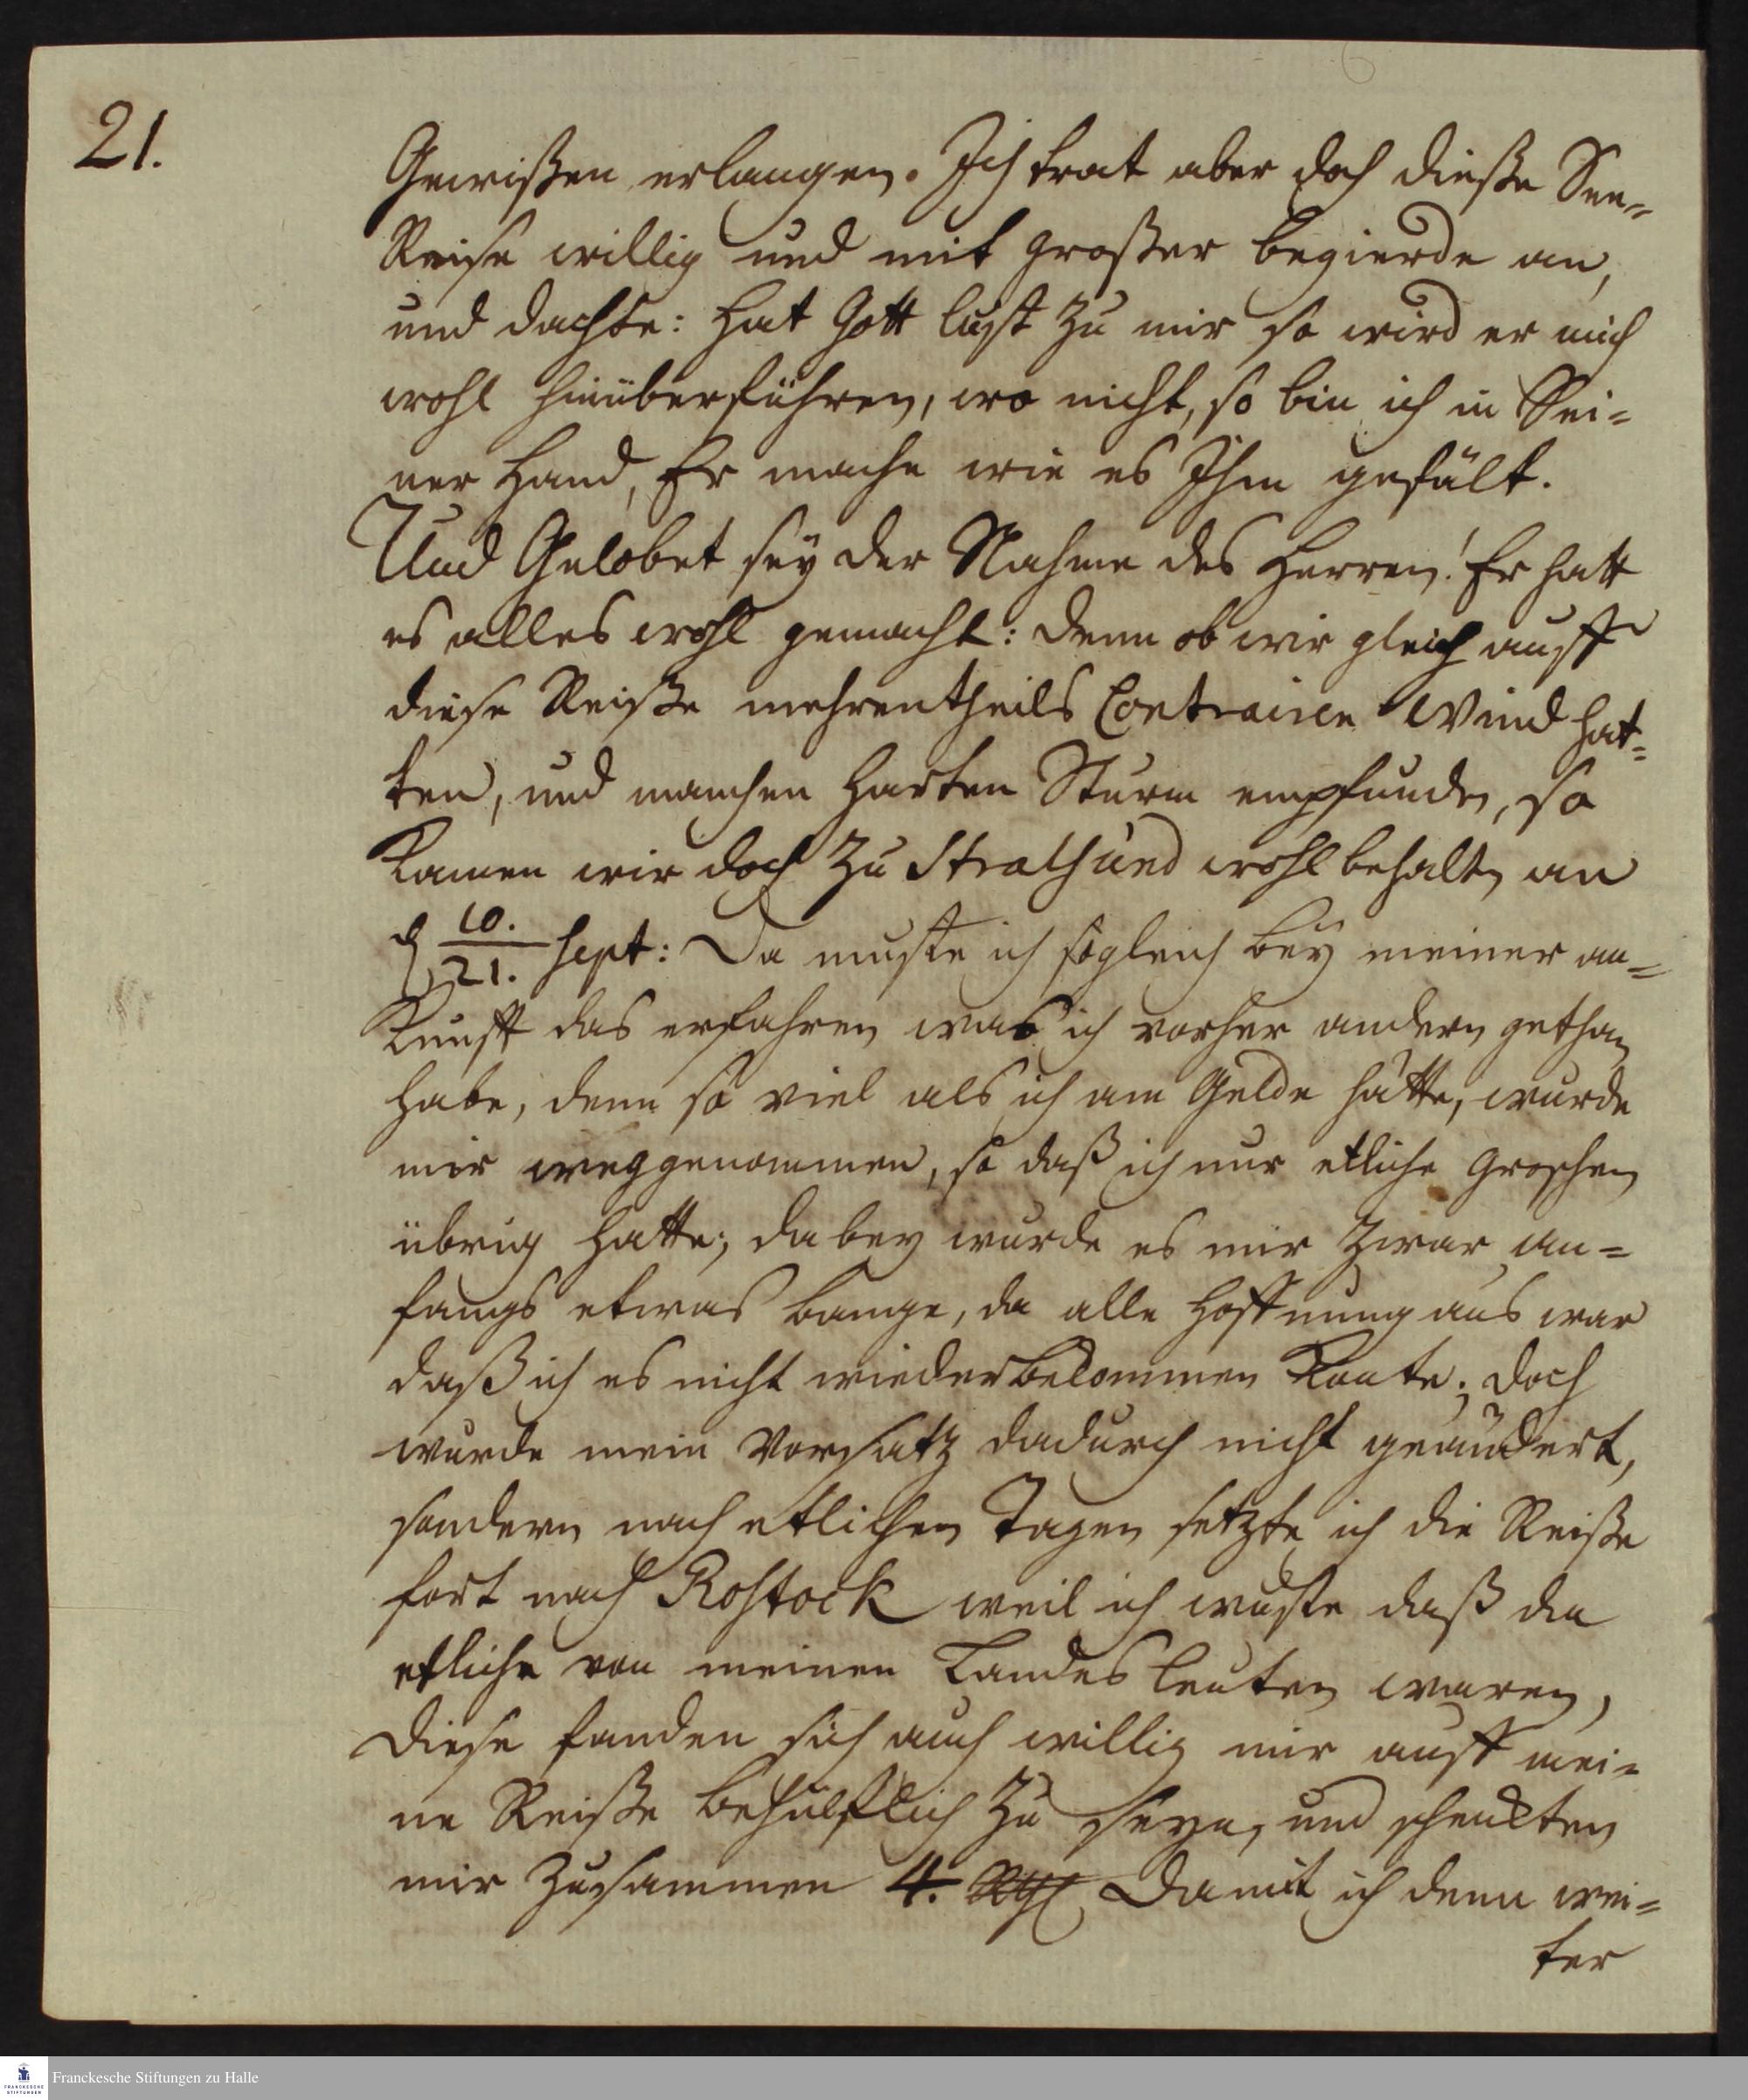 21.
Gewißen erlangen. Ich trat aber doch dieße See=
Reise willig und mit großer begierde an,
und dachte: hat Gott lust zu mir so wird er mich
wohl hinüberführen, wo nicht, so bin ich in Sei=
ner Hand, Er mache wie es Ihm gefält.
Und Gelobet seÿ der Nahme des Herren! Er hatt
es alles wohl gemacht: denn ob wir gleich auff
diese Reiße mehrentheils Contrairen Wind hat=
ten, und manchen harten Sturm empfunden, so
kamen wir doch zu Stralsund wohlbehalten an
d 10./21. Sept: Da muste ich sogleich beÿ meiner an=
kunfft das erfahren was ich vorher andern gethan
habe, denn so viel als ich am Gelde hatte, wurde
mir weggenommen, so daß ich nur etliche Groschen
übrig hatte; dabey wurde es mir zwar an=
fangs etwas bange, da alle Hoffnung aus war
daß ich es nicht wiederbekommen konte; doch
wurde mein Vorsatz dadurch nicht geändert,
sondern nach etlichen Tagen setzte ich die Reiße
fort nach Rostock weil ich wuste daß da
etliche von meinen Landes Leuten waren,
diese fanden sich auch willig mir auff mei=
ne Reiße behülfflich zu seyn, und schenkten
mir zusammen 4. Rthl Damit ich denn wei=
ter
Franckesche Stiftungen zu Halle
FRANCKESCHE
STIFTUNGEN